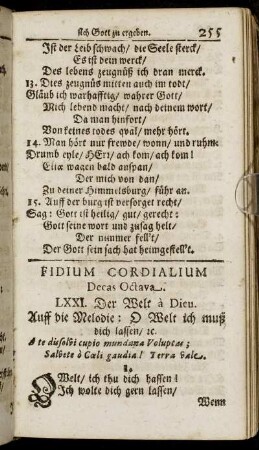 sich Gott zu ergeben. 255
Ist der Leib schwach/ die Seele sterck/
Es ist dein werck/
Des lebens zeugnüß ich dran merck.
13. Dies zeugnüs mitten auch im todt/
Gläub ich warhafftig/ wahrer Gott/
Mich lebend macht/ nach deinem wort/
Da man hinfort/
Von keines todes qval/ mehr hört.
14. Man hört nur frewde/ wonn/ und ruhm:
Drumb eyle/ HErr/ ach kom/ ach kom!
Eliæ wagen bald anspan/
Der mich von dan/
Zu deiner Himmelsburg/ führ an.
15. Auff der burg ist versorget recht/
Sag: Gott ist heilig/ gut/ gerecht:
Gott seine wort und zusag helt/
Der nimmer fell't/
Der Gott sein sach hat heimgestell't.
FIDIUM CORDIALIUM
Decas Octava.
LXXI. Der Welt à Dieu.
Auff die Melodie: O Welt ich muß
dich lassen/ ꝛc.
O te dissolvi cupio mundana Voluptas;
Salvete ò Cœli gaudia! Terra vale.
1.
O Welt/ ich thu dich hassen!
Ich wolte dich gern lassen/
Wenn